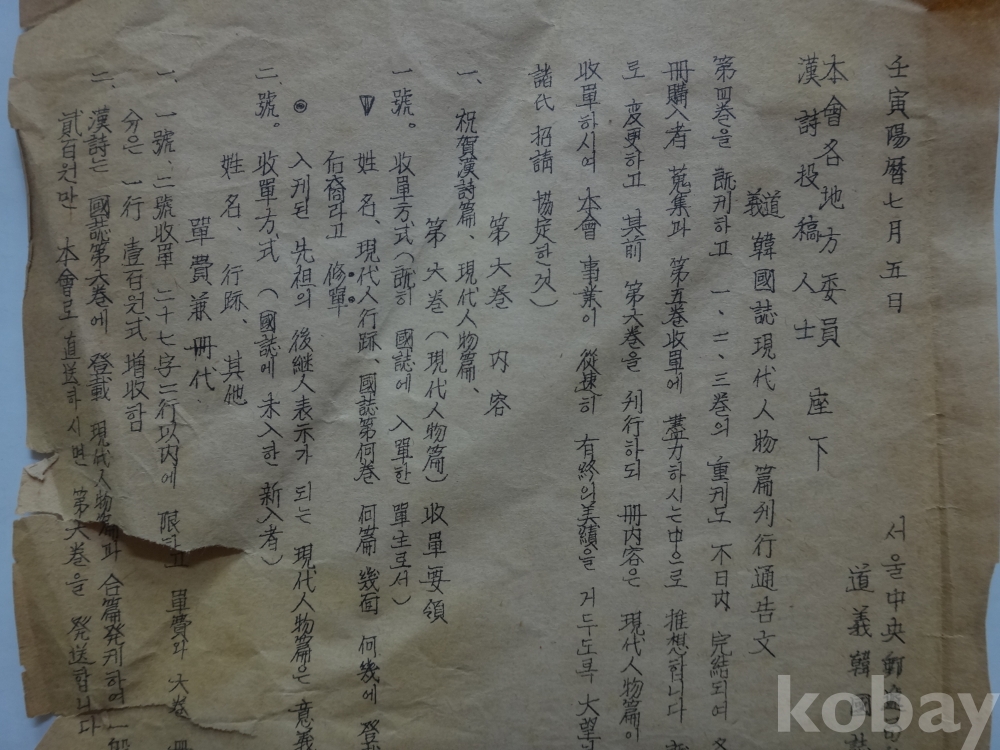 壬寅陽曆七月五日
서울中央郵遞
道義韓國
本會各地方委員
漢詩投稿人士 座下
道義 韓國誌現代人物篇刊行通告文
第四巻을 旣刊하고 一、二、三巻의 重刊도 不日内 完結되여
冊購入者 蒐集과 第五巻收單에 盡力하시는中으로 推想합니다
로 変更하고 其前 第六巻을 刊行하되 冊内容은 現代人物篇이
收單하시여 本會 事業이 從速히 有終의美績을 거두도록 大望
諸氏 招請 協定하것)
第六巻 内容
一、祝賀漢詩篇、現代人物篇、
第六巻(現代人物篇) 收單要領
一號。 收單方式(旣히 國誌에 入單한 單主로서)
姓名、現代人行跡、國誌第何巻 何篇 幾面 何幾에 登
后裔라고 修單。
◉ 入刊된 先祖의 後継人表示가 되는 現代人物篇은 意義
二號。 收單方式 (國誌에 未入한 新入者)
姓名、行跡、其他
單費兼冊代
一、一號、二號收單 二十七字 三行以内에 限하고 單費와 六巻
分은 一行 壹百원式 增收함
二、漢詩는 國誌第六巻에 登載 現代人物篇과 合篇発刊하여
貳百원만 本會로 直送하시면 第六巻을 発送합니다
kobay